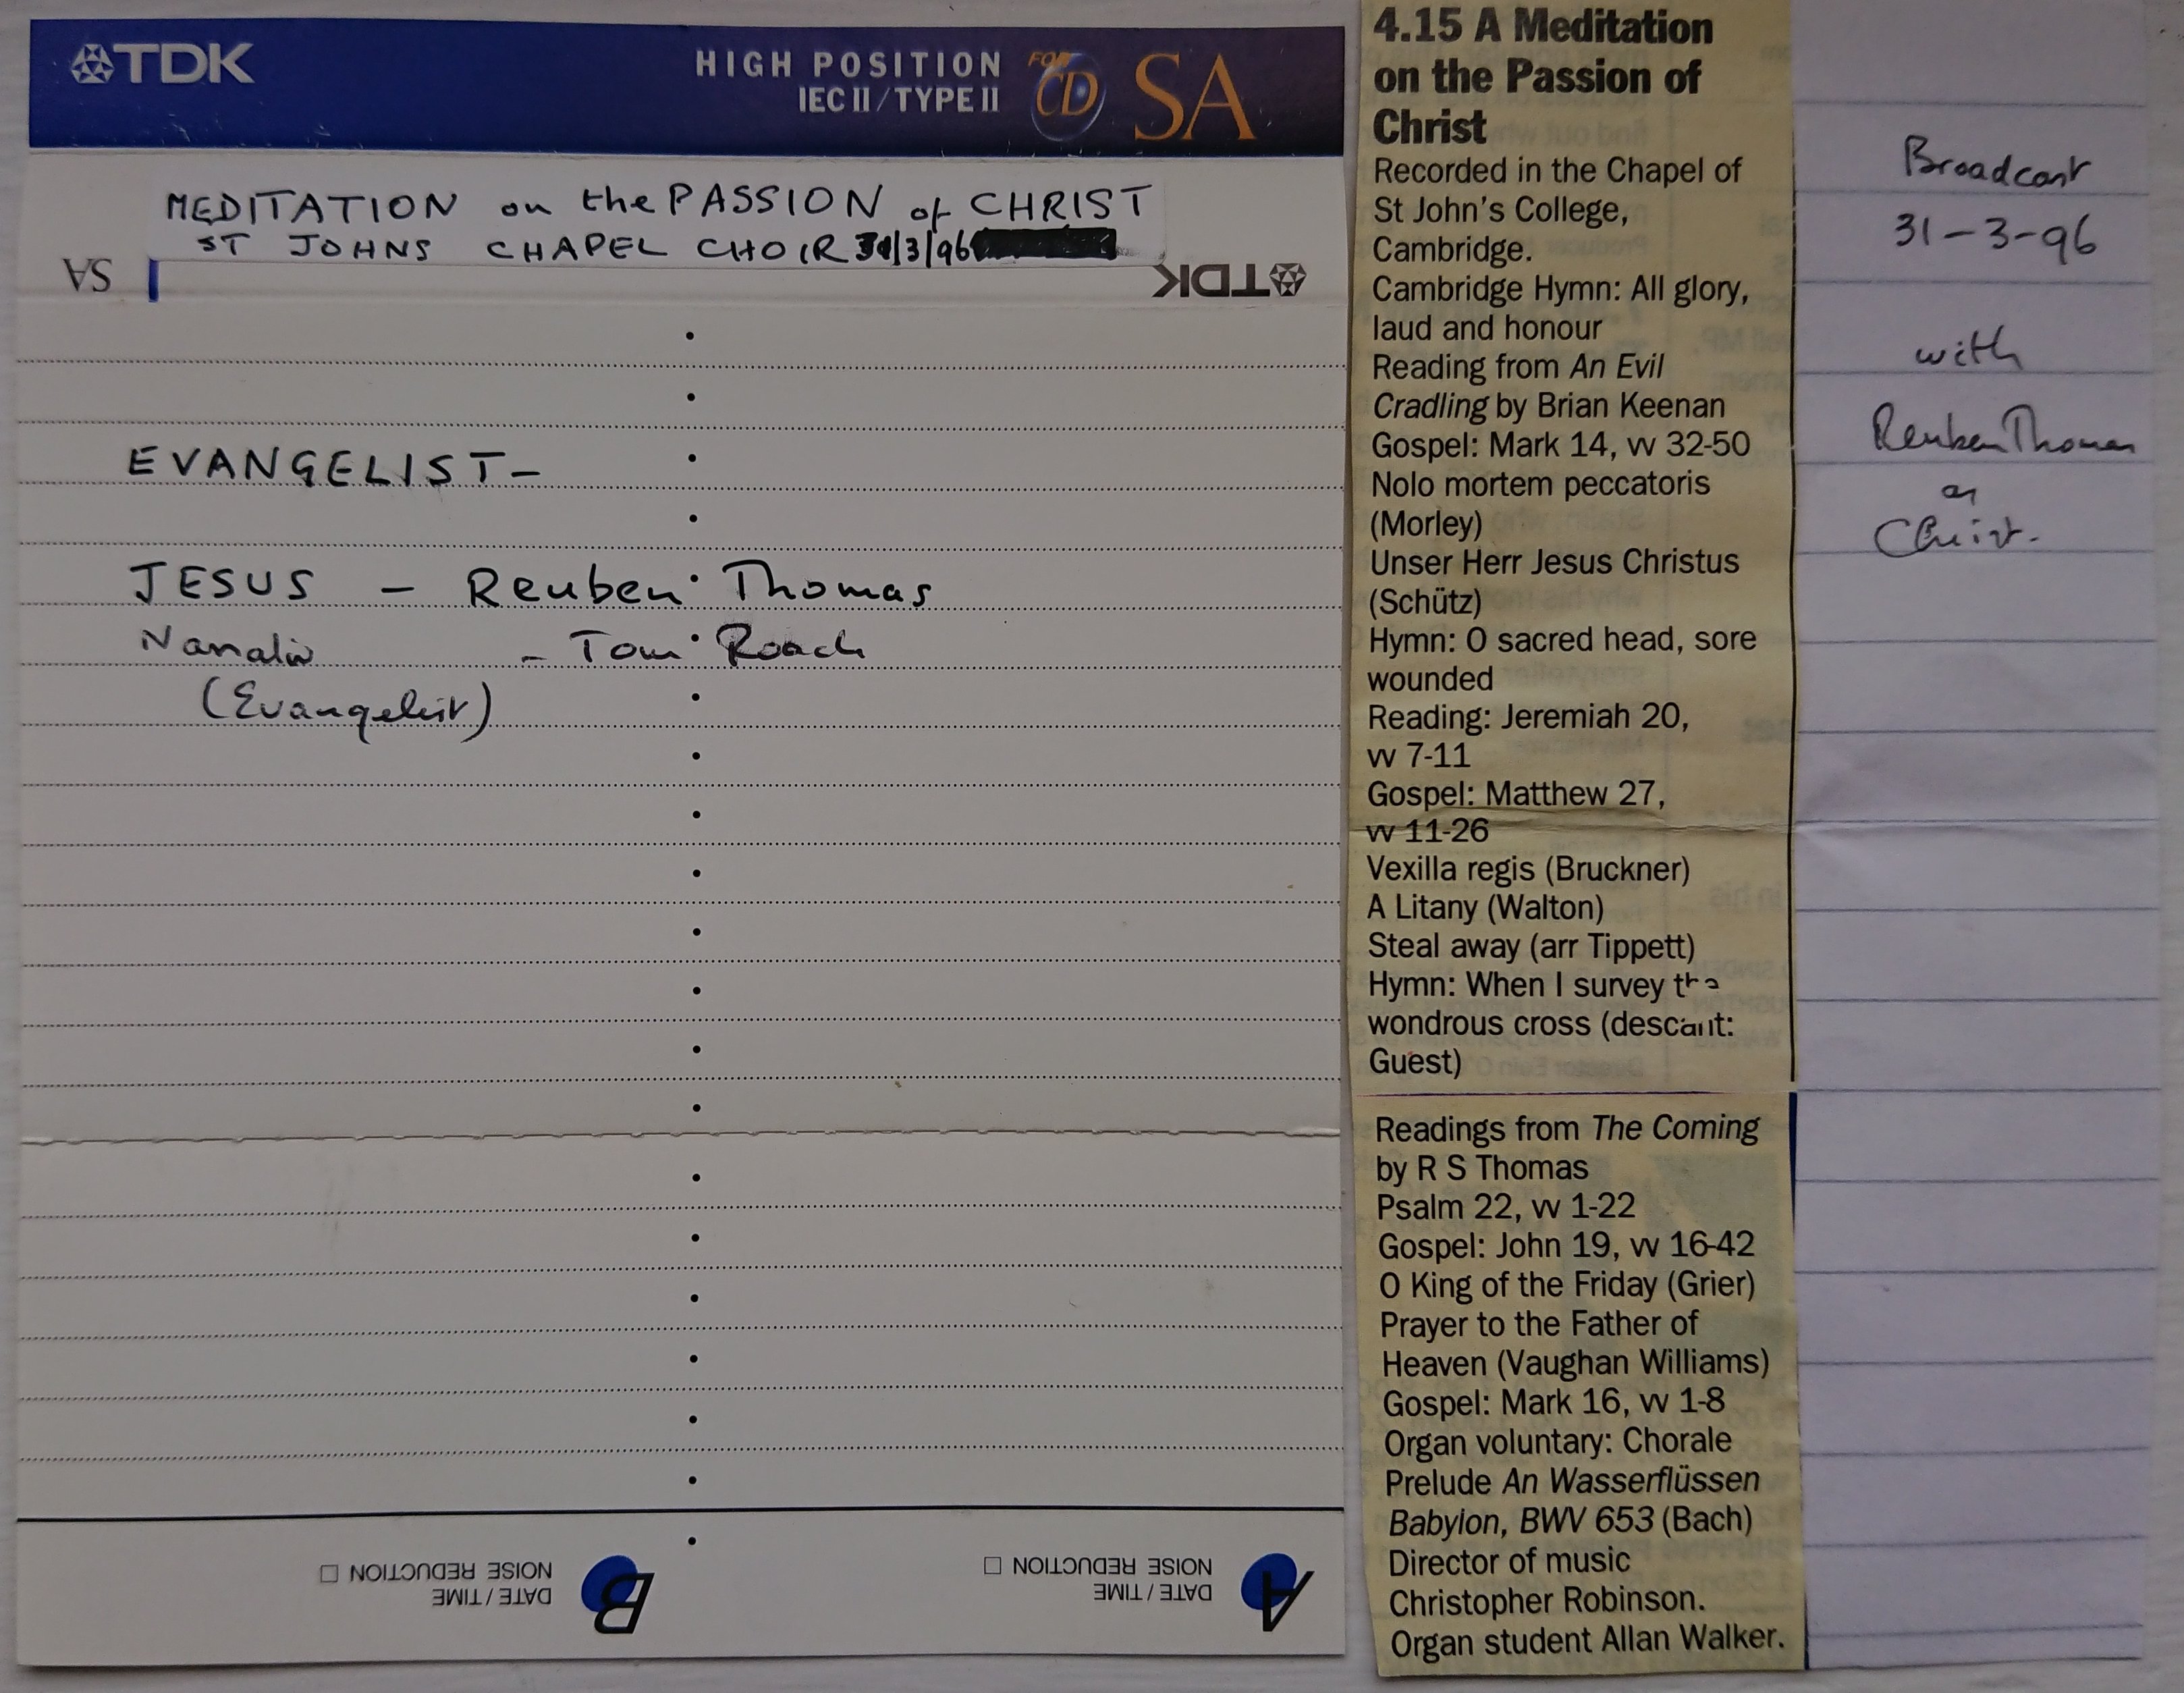 TDK
HIGH POSITION
IEC II / TYPE II
FOR CD
SA
MEDITATION on the PASSION of CHRIST
ST JOHNS CHAPEL CHOIR 31/3/96
SA
TDK
EVANGELIST-
JESUS - Reuben Thomas
- Tom Roach
(Evangelist)
NOISE REDUCTION
DATE / TIME
B
NOISE REDUCTION
DATE / TIME
A
4.15 A Meditation
on the Passion of
Christ
Recorded in the Chapel of
St John's College,
Cambridge.
Cambridge Hymn: All glory,
laud and honour
Reading from An Evil
Cradling by Brian Keenan
Gospel: Mark 14, vv 32-50
Nolo mortem peccatoris
(Morley)
Unser Herr Jesus Christus
(Schütz)
Hymn: O sacred head, sore
wounded
Reading: Jeremiah 20,
vv 7-11
Gospel: Matthew 27,
vv 11-26
Vexilla regis (Bruckner)
A Litany (Walton)
Steal away (arr Tippett)
Hymn: When I survey the
wondrous cross (descant:
Guest)
Readings from The Coming
by R S Thomas
Psalm 22, vv 1-22
Gospel: John 19, vv 16-42
O King of the Friday (Grier)
Prayer to the Father of
Heaven (Vaughan Williams)
Gospel: Mark 16, vv 1-8
Organ voluntary: Chorale
Prelude An Wasserflüssen
Babylon, BWV 653 (Bach)
Director of music
Christopher Robinson.
Organ student Allan Walker.
Broadcast
31-3-96
with
Reuben Thomas
as
Christ.